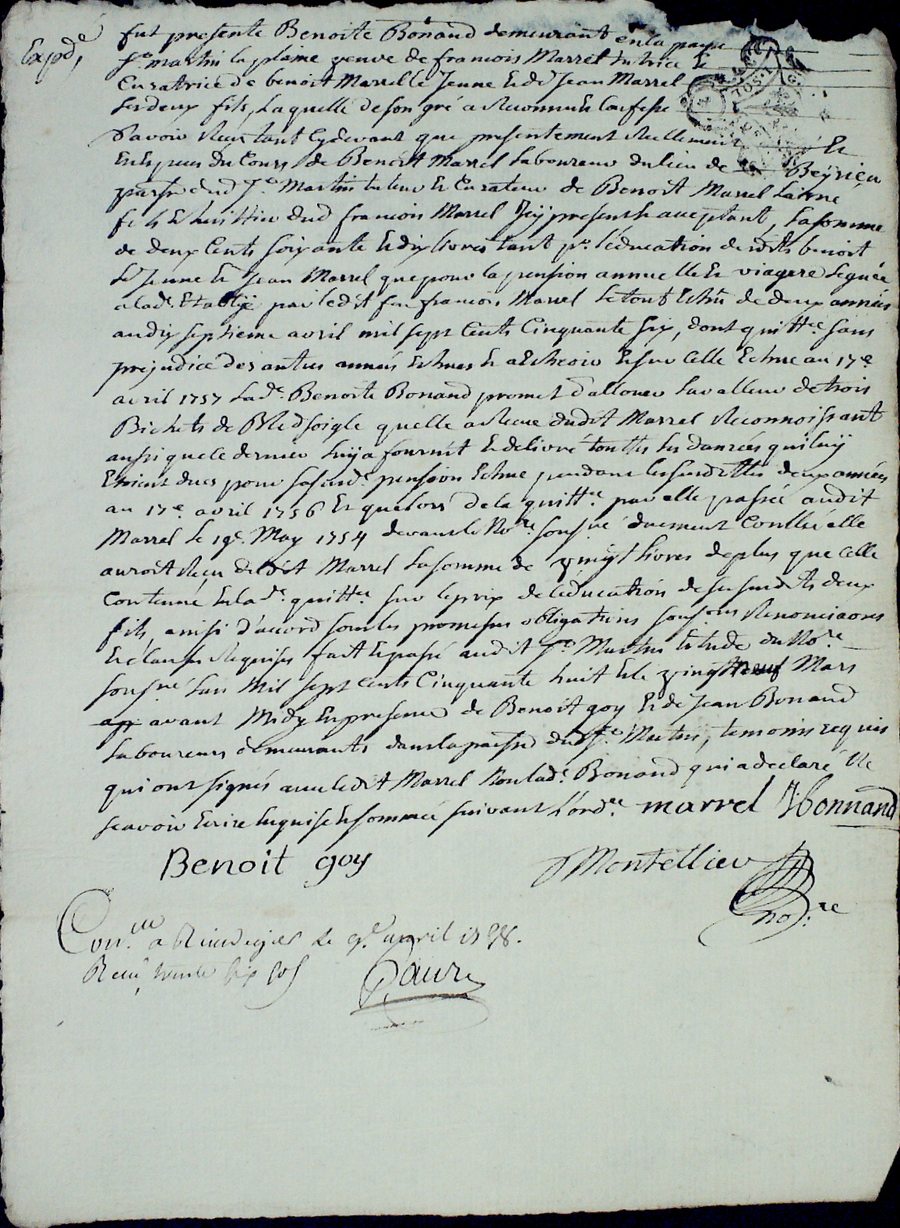 Expd.é
fut presente Benoite Bonand demeurant en la par.se
st. martin la plaine veuve de francois Marrel tutrice Et
Curatrice de benoit Marrel le Jeune Et de Jean Marrel
ses deux fils, Laquelle de son gré a Reconnu Et confessé
avoir Reçu tant Cydevant que presentement Reellement Et
En Especes du Cours de Benoit Marrel Laboureur du lieu de Beyrieu
par.sse dud St. Martin tuteur Et Curateur de Benoit Marrel Lainé
fils Et heritier dud francois Marrel Icy present Et acceptant, La somme
de deux Cents soixante Et dix livres tant pr. l'education desdits benoit
Le Jeune Et Jean Marrel que pour la pension annuelle Et viagere Leguée
a lad.e Etablie par ledit feu francois Marrel Le tout Echû de deux années
au dix septieme avril mil sept Cents Cinquante six, dont quitt.ce sans
prejudice des autres années Echues Et a Echeoir Et sur Celle Echue au 17.e
avril 1757 Lad.e Benoite Bonand promet d'allouer La valleur de trois
Bichets de Bled soigle quelle a Recue dudit Marrel Reconnoissant
aussi que le dernier Luy a fournit Et delivré touttes Les danrées qui luy
Etoient dues pour sa susd.e pension Echue pendant les susdittes deux années
au 17.e avril 1756 Et qualors de la quitt.ce par elle passée audit
Marrel Le 19.e May 1754 devant le No.re sousné duement Conllée elle
auroit Reçu dudit Marrel La somme de vingt livres de plus que Celle
Contenue En lad.e quitt.ce sur le prix de l'education de ses susdits deux
fils, ainsi d'accord sous les promesses obligations Renonciaons
Et clauses Requises fait Et passé audit St. Martin Etude du No.re
sousné Lan Mil sept Cents Cinquante huit Et le vingt neuf Mars
ap avant Midy En presence de Benoit goy Et de Jean Bonand
Laboureurs demeurants dans la par.sse dud St. Martin, temoins requis
qui ont signés avec ledit Marrel Non lad.e Bonand qui a declaré Ne
scavoir Ecrire Enquise Et sommée suivant L'ord.ce marrel J bonnand
Benoit goy Montellier
no.re
Con.lle a Rivedegier le 9.e avril 1758.
Reçu, trente six sols
Faure